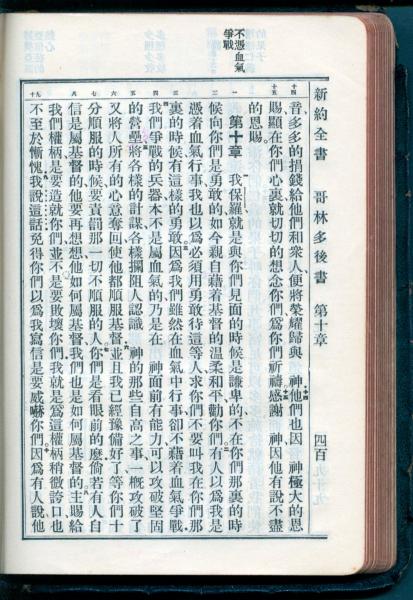 新約全書 哥林多後書 第十章 四百九十九
十四
音多多的捐錢給他們和衆人便將榮耀歸與 神他們也因 神極大的恩
十五
賜顯在你們心裏就切切的想念你們爲你們祈禱感謝 神因他有說不盡
的恩賜
不憑血氣
爭戰
一
第十章 我保羅就是與你們見面的時候是謙卑的不在你們那裏的時
二
候向你們是勇敢的如今親自藉着基督的溫柔和平勸你們有人以爲我是
憑着血氣行事我也以爲必須用勇敢待這等人求你們不要叫我在你們那
三
裏的時候有這樣的勇敢因爲我們雖然在血氣中行事卻不藉着血氣爭戰
四
我們爭戰的兵器本不是屬血氣的乃是在 神面前有能力可以攻破堅固
五
的營壘將各樣的計謀各樣攔阻人認識 神的那些自高之事一概攻破了
六
又將人所有的心意奪回使他都順服基督並且我已經豫備好了等你們十
七
分順服的時候要責罰那一切不順服的人你們是看眼前的麽倘若有人自
八
信是屬基督的他要再想想他如何屬基督我們也是如何屬基督的主賜給
我們權柄是要造就你們並不是要敗壞你們我就是爲這權柄稍微誇口也
九十
不至於慚愧我說這話免得你們以爲我寫信是要威嚇你們因爲有人說他